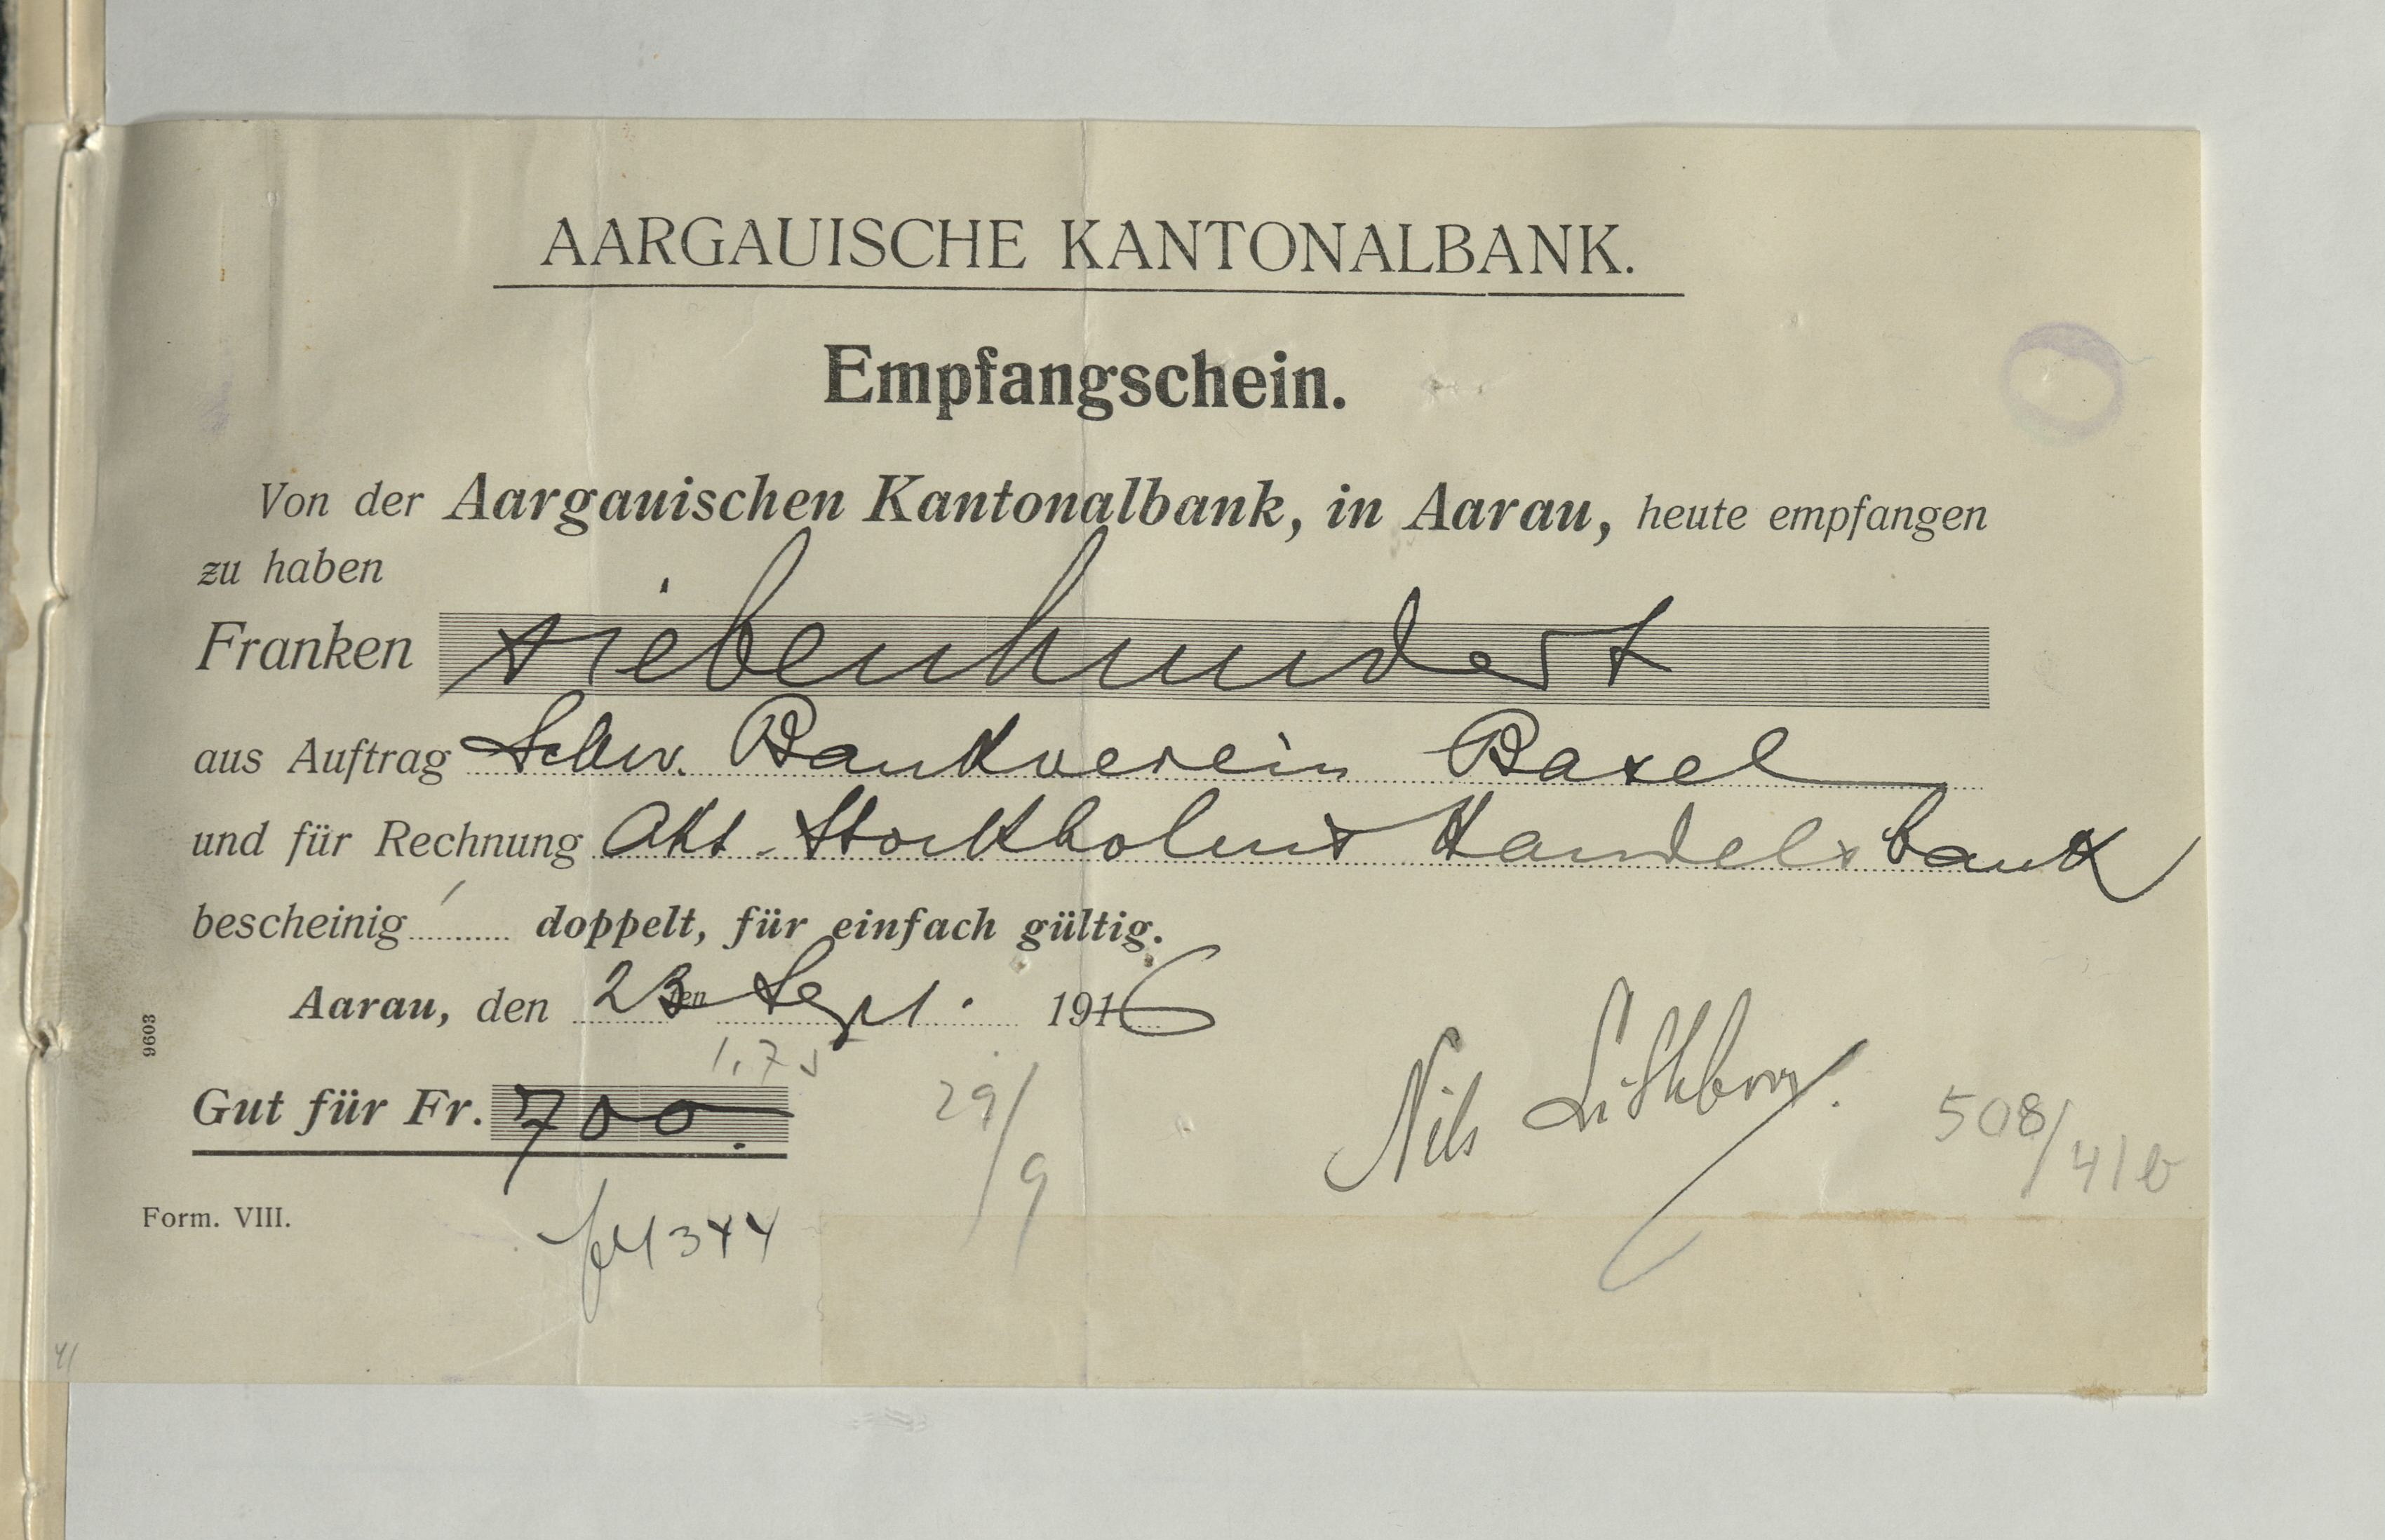 AARGAUISCHE KANTONALBANK.
Empfangschein.
Von der Aargauischen Kantonalbank, in Aarau, heute empfangen
zu haben
Franken siebenhundert
aus Auftrag Schw. Bankverein Basel
und für Rechnung Akt. Stockholms Handelsbank
bescheinig doppelt, für einfach gültig.
Aarau, den 23ten Sept. 1916
Gut für Fr. 700.
29/9
Nils
508/41b
Form. VIII.
9603
41